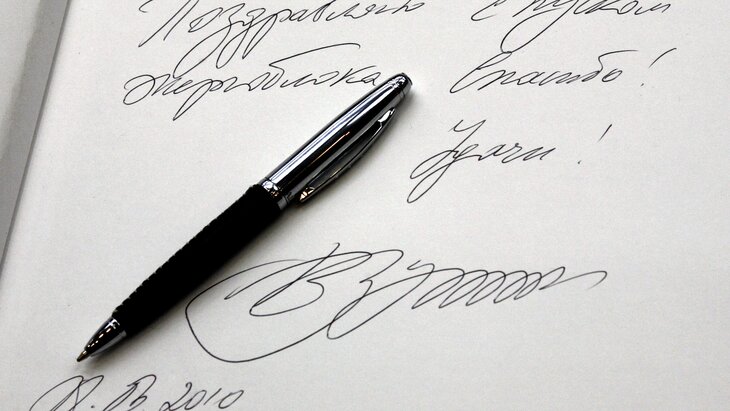 Поздравляю с пуском
энергоблока Спасибо!
Удачи!
2010